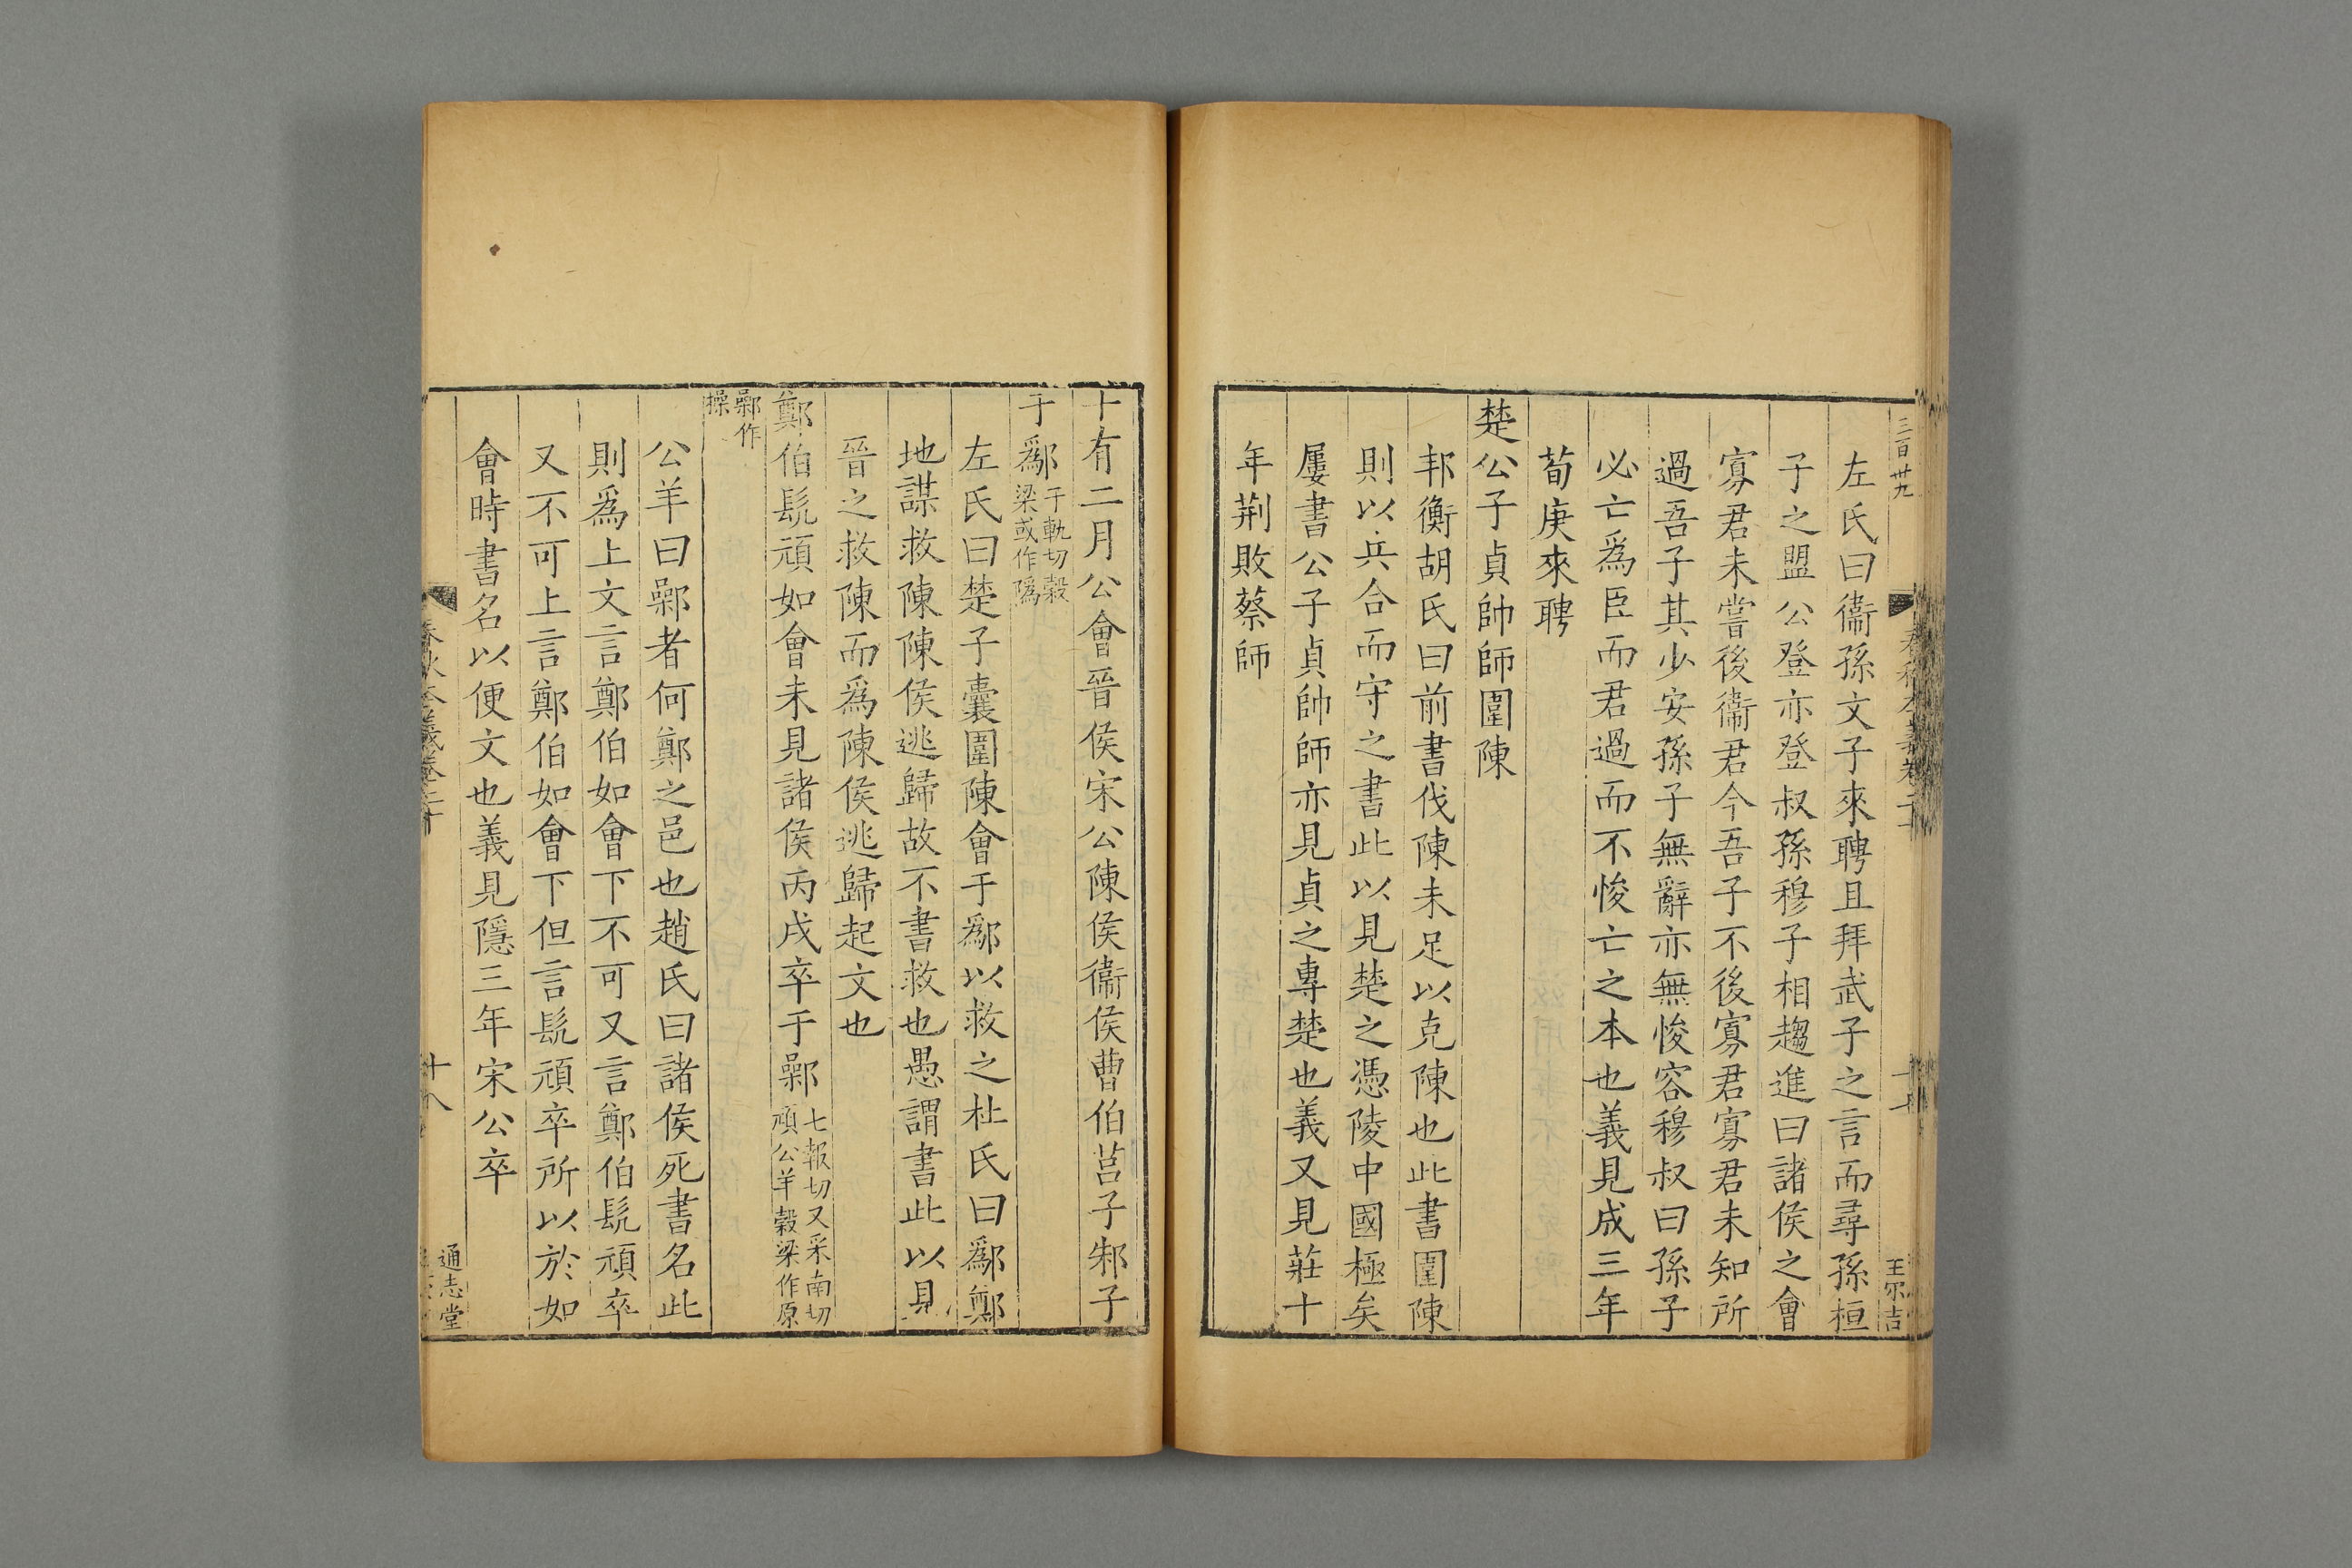 三百卅九
春秋本義卷二十
王宗吉
左氏曰衞孫文子來聘且拜武子之言而尋孫桓
子之盟公登亦登叔孫穆子相趨進曰諸侯之會
寡君未嘗後衞君今吾子不後寡君寡君未知所
過吾子其少安孫子無辭亦無悛容穆叔曰孫子
必亡爲臣而君過而不悛亡之本也義見成三年
荀庚來聘
楚公子貞帥師圍陳
邦衡胡氏曰前書伐陳未足以克陳也此書圍陳
則以兵合而守之書此以見楚之憑陵中國極矣
屢書公子貞帥師亦見貞之專楚也義又見莊十
年荆敗蔡師
十有二月公會晉侯宋公陳侯衞侯曹伯莒子邾子
于鄬于軌切穀梁或作隝
左氏曰楚子囊圍陳會于鄬以救之杜氏曰鄬鄭
地謀救陳陳侯逃歸故不書救也愚謂書此以見
晉之救陳而爲陳侯逃歸起文也
鄭伯髡頑如會未見諸侯丙戌卒于鄵七報切又采南切頑公羊穀梁作原
鄵作操
公羊曰鄵者何鄭之邑也趙氏曰諸侯死書名此
則爲上文言鄭伯如會下不可又言鄭伯髡頑卒
又不可上言鄭伯如會下但言髡頑卒所以於如
會時書名以便文也義見隱三年宋公卒
春秋本義卷二十
十八
通志堂